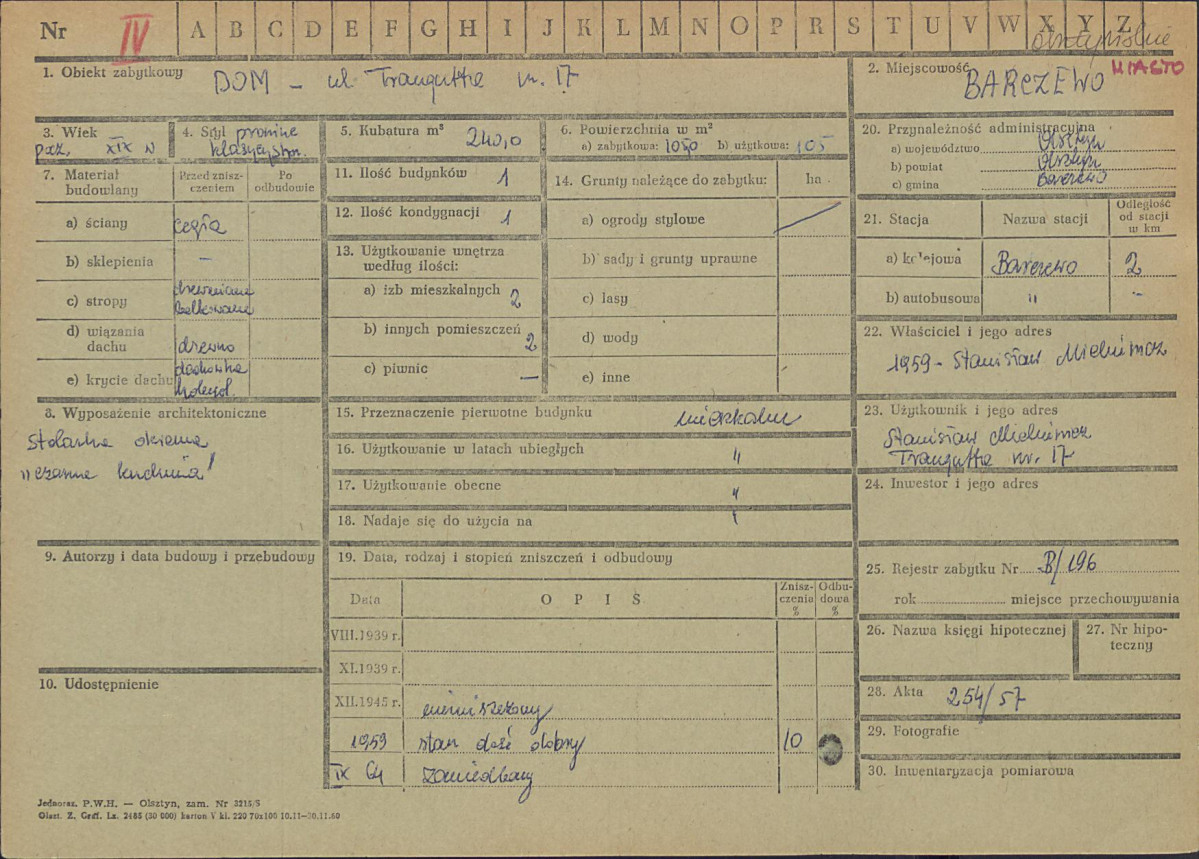 Nr IV A B C D E F G H I J K L M N O P R S T U V W X Y Z
olsztyńskie
1. Obiekt zabytkowy DOM - ul Traugutta nr. 17
2. Miejscowość BARCZEWO MIASTO
3. Wiek pocz. XIX w
4. Styl prowinc klasycystycz.
5. Kubatura m³ 240,0
6. Powierzchnia w m²
a) zabytkowa: 105,0 b) użytkowa: 105
20. Przynależność administracyjna
a) województwo Olsztyn
b) powiat Olsztyn
c) gmina Barczewo
7. Materiał budowlany
Przed zniszczeniem
Po odbudowie
a) ściany cegła
b) sklepienia —
c) stropy drewniane belkowane
d) wiązania dachu drewno
e) krycie dachu dachówka holend.
11. Ilość budynków 1
12. Ilość kondygnacji 1
13. Użytkowanie wnętrza według ilości:
a) izb mieszkalnych 2
b) innych pomieszczeń 2
c) piwnic —
14. Grunty należące do zabytku: ha
a) ogrody stylowe
b) sady i grunty uprawne
c) lasy
d) wody
e) inne
21. Stacja
Nazwa stacji
Odległość od stacji w km
a) kolejowa Barczewo 2
b) autobusowa " -
22. Właściciel i jego adres
1959 - Stanisław
8. Wyposażenie architektoniczne
Stolarka okienna
"czarna kuchnia"
15. Przeznaczenie pierwotne budynku mieszkalne
16. Użytkowanie w latach ubiegłych "
17. Użytkowanie obecne "
18. Nadaje się do użycia na "
23. Użytkownik i jego adres
Stanisław
Traugutta nr. 17
24. Inwestor i jego adres
9. Autorzy i data budowy i przebudowy
19. Data, rodzaj i stopień zniszczeń i odbudowy
Data O P I S Zniszczenia % Odbudowa %
VIII.1939 r.
XI.1939 r.
XII.1945 r. niezniszczony
1959 stan dość dobry 10
IX 64 zaniedbany
25. Rejestr zabytku Nr B/196
rok miejsce przechowywania
26. Nazwa księgi hipotecznej
27. Nr hipoteczny
10. Udostępnienie
28. Akta 254/57
29. Fotografie
30. Inwentaryzacja pomiarowa
Jednoraz. P.W.H. — Olsztyn, zam. Nr 3215/S
Olszt. Z. Graf. Lz. 2485 (30 000) karton V kl. 220 70x100 10.11—30.11.60